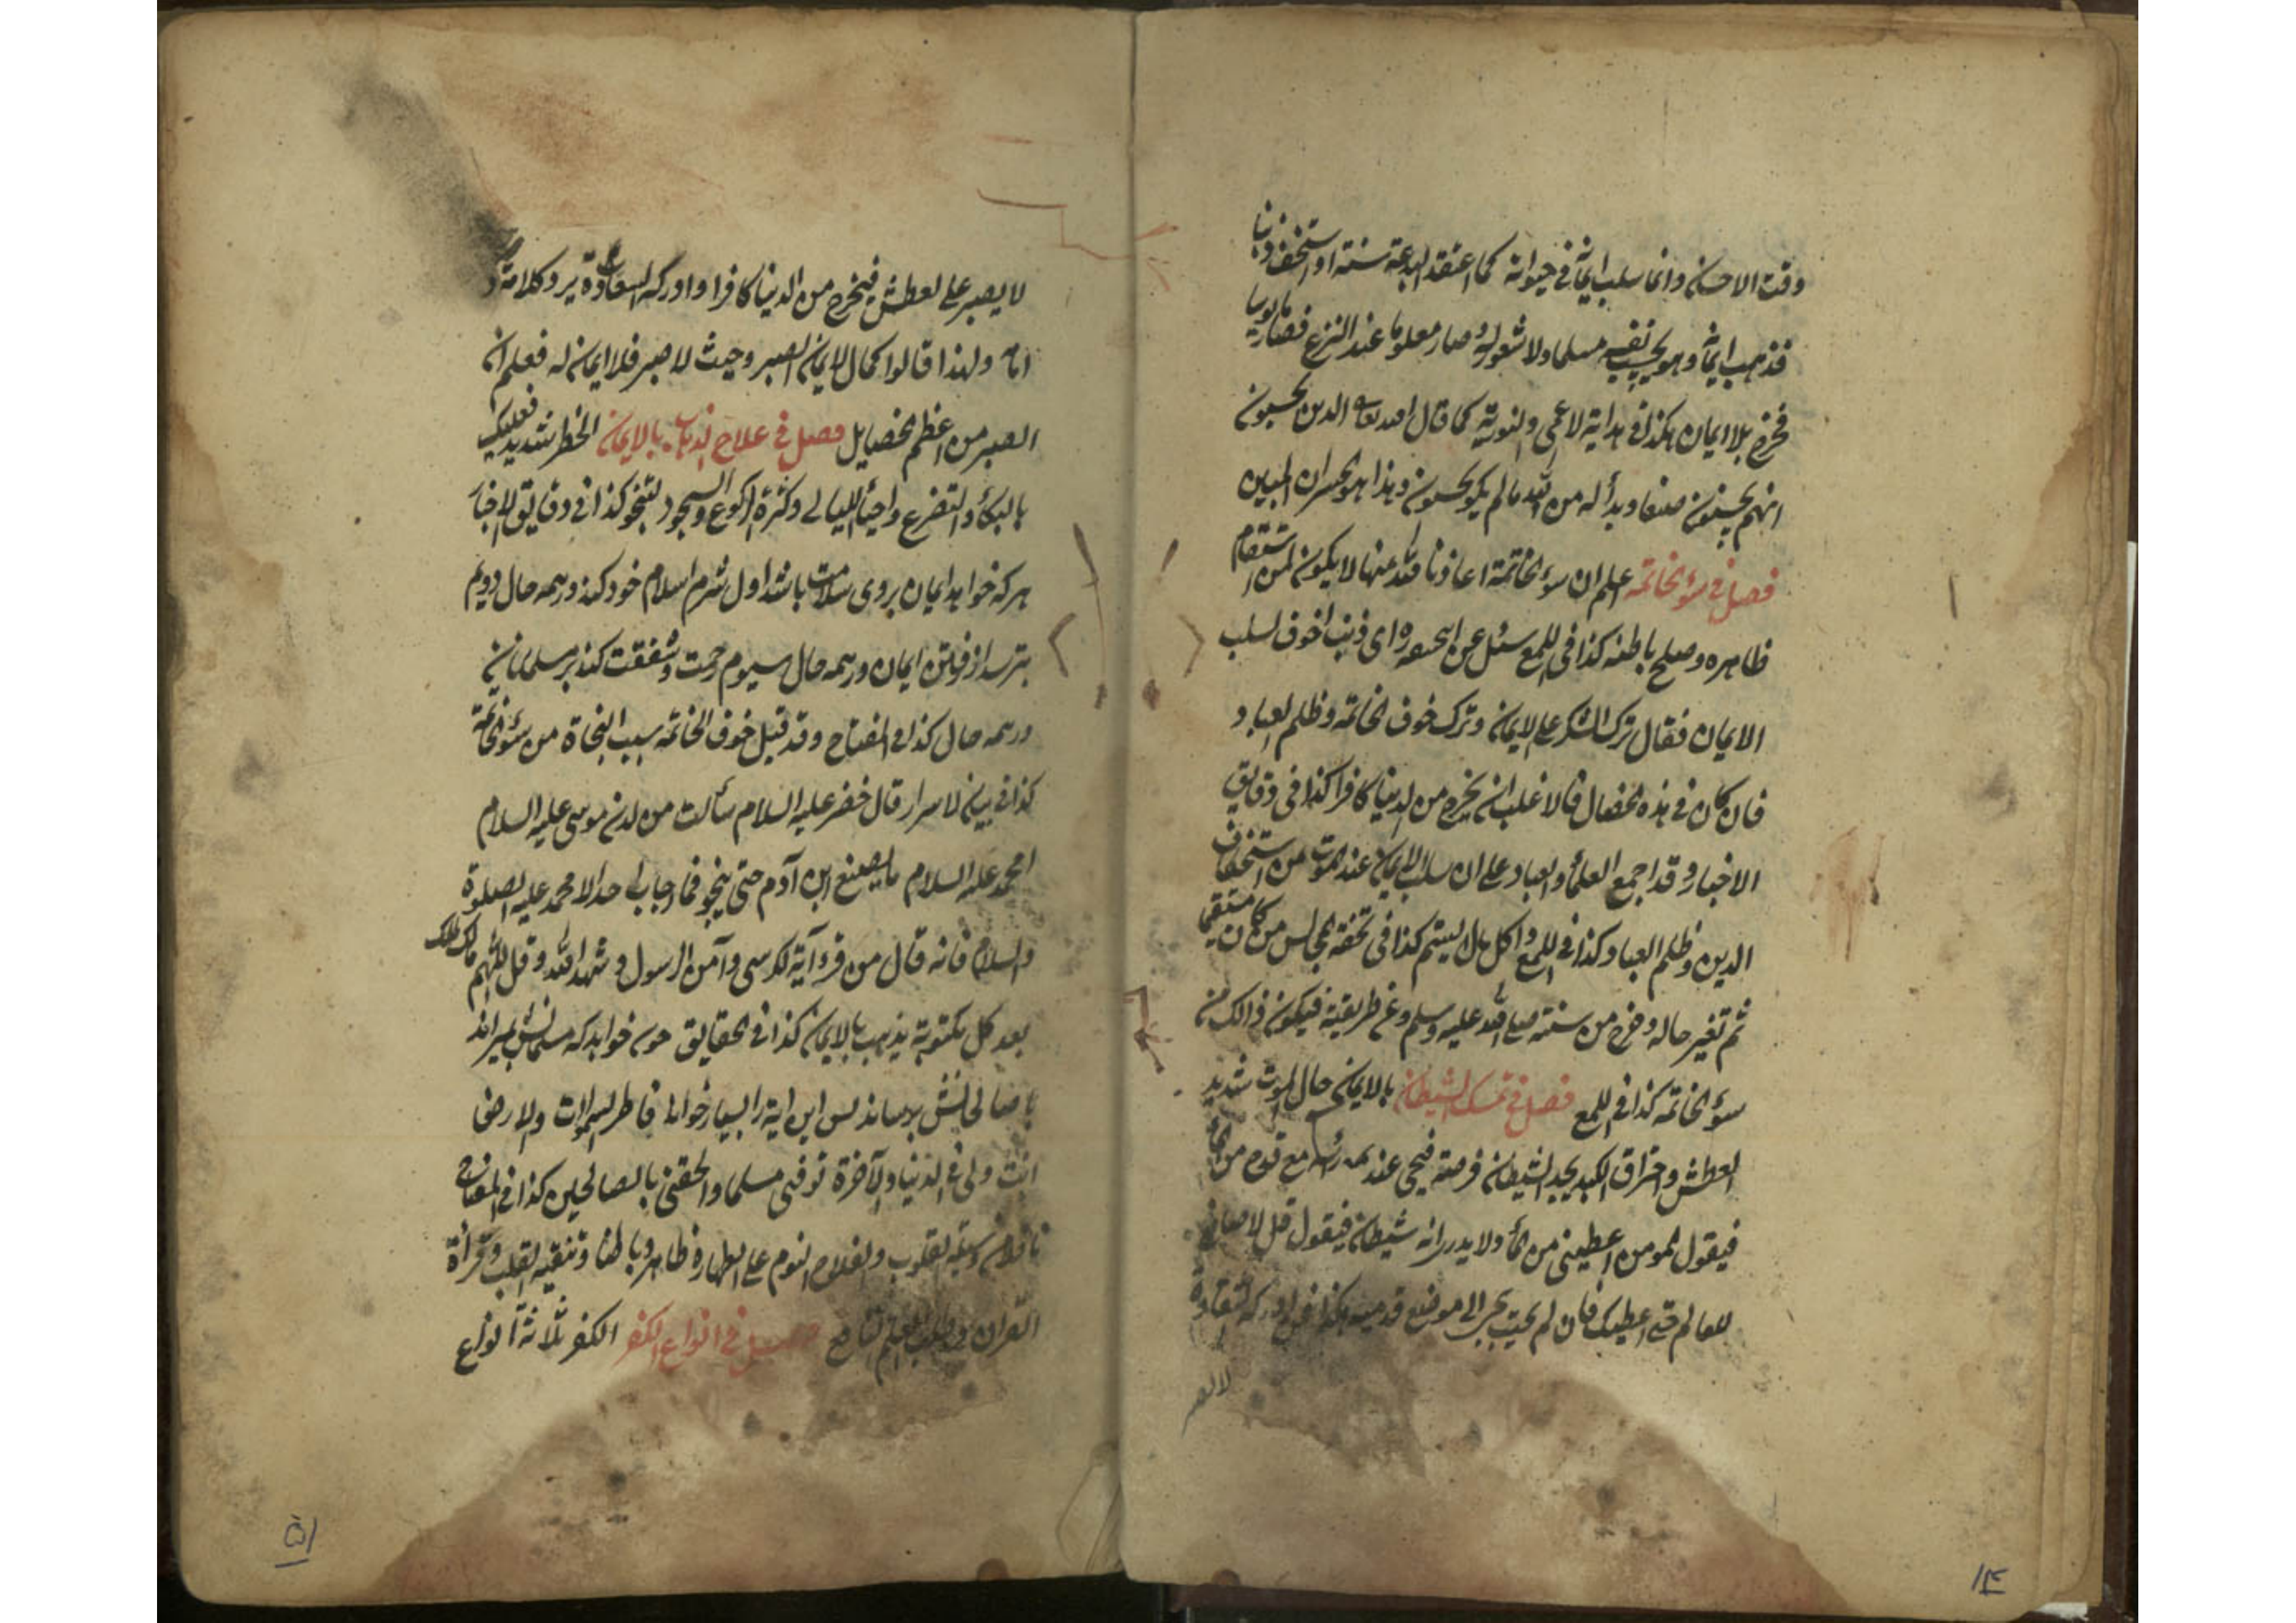 وقت الاحسان وانما سلب ايمانه في حيواته كما اعتقد البدعة سنة او استخف دينا
فذهب ايمانه وهو يحسب نفسه مسلما ولا شعور له وصار معلوما عند النزع فصار
فخرج بلا ايمان هكذا في هداية الاعمى والنورية كما قال الله تعالى الذين يحسبون
انهم يحسنون صنعا وبدأ له من الله ما لم يكن يحسبون وهذا هو الخسران المبين
فصل في سوء خاتمه اعلم ان سوء الخاتمة اعاذنا الله منها لا يكون لمن استقام
ظاهره وصلح باطنه كذا في اللمع سئل عن اى ذنب اخوف لسلب
الايمان فقال ترك الشكر على الايمان وترك خوف الخاتمه وظلم العباد
فان كان في هذه الخصال فالاغلب ان يخرج من الدنيا كافرا كذا في دقايق
الاخبار وقد اجمع العلماء والعباد على ان سلب الايمان عند الموت من استخفاف
الدين وظلم العباد كذا في اللمع واكل مال اليتيم كذا في تحفة المجالس من كان مستقيما
ثم تغير حاله وخرج من سنته صلى الله عليه وسلم وعن طريقته فيكون ذالك من
سوء الخاتمه كذا في اللمع فصل في تمسك الشيطان بالايمان حال الموت شديد
العطش واحتراق الكبد يجد الشيطان فرصة فيجئ عند رأسه مع قدح من الماء
فيقول المومن اعطيني من الماء ولا يدر انه شيطان فيقول قل لا صانع
للعالم حتى اعطيك فان لم يجيب يجئ الى موضع قدميه هكذا فمن ادركه الشقاوة
لا يصبر
۱۴
لا يصبر على العطش فيخرج من الدنيا كافرا و ادركه السعادة يرد كلامه
ولهذا قالوا كمال الايمان الصبر وحيث لا صبر فلا ايمان له فعلم ان
الصبر من اعظم الخصايل فصل في علاج الذهاب بالايمان الخطر شديد فعليك
بالبكاء والتضرع واحياء الليالى وكثرة الركوع والسجود لتنجو كذا في دقايق الاخبار
هر كه خواهد ايمان بروى سلامت باشد اول شرم اسلام خود كند در همه حال دويم
بترسد از فوتن ايمان در همه حال سيوم رحمت وشفقت كند بر مسلمانان
در همه حال كذا في المفتاح وقد قيل خوف الخاتمه سبب النجاة من سوء الخاتمة
كذا في بيان الاسرار قال خضر عليه السلام سألت من لدن موسى عليه السلام
محمد عليه السلام ما يصنع ابن آدم حتى ينجو فما اجابى احد الا محمد عليه الصلوة
والسلام فانه قال من قرء آية الكرسى وآمن الرسول وشهد الله وقل اللهم مالك الملك
بعد كل مكتوبة يذهب بالايمان كذا في الحقايق چون خواهد كه مسلمانش ميراند
با صالحانش برساند پس اين اية را بسيار خواند فاطر السموات والارض
انت ولى في الدنيا والآخرة توفنى مسلما والحقنى بالصالحين كذا في المفتاح
القلوب النوم على الطهارة ظاهرا وباطنا وتنقيه القلب وقرأة
القران وطلب العلم النافع فصل في انواع الكفر الكفر ثلاثة انواع
۱۵